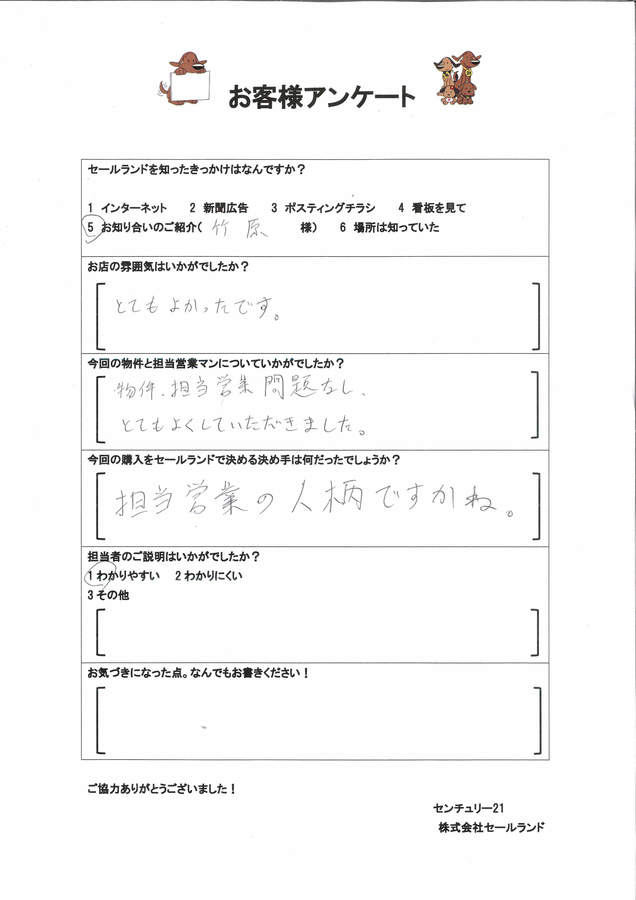 お客様アンケート
セールランドを知ったきっかけはなんですか？
1 インターネット 2 新聞広告 3 ポスティングチラシ 4 看板を見て
5 お知り合いのご紹介( 竹原 様) 6 場所は知っていた
お店の雰囲気はいかがでしたか？
とてもよかったです。
今回の物件と担当営業マンについていかがでしたか？
物件、担当営業問題なし、
とてもよくしていただきました。
今回の購入をセールランドで決める決め手は何だったでしょうか？
担当営業の人柄ですかね。
担当者のご説明はいかがでしたか？
1 わかりやすい 2 わかりにくい
3 その他
お気づきになった点。なんでもお書きください！
ご協力ありがとうございました！
センチュリー21
株式会社セールランド